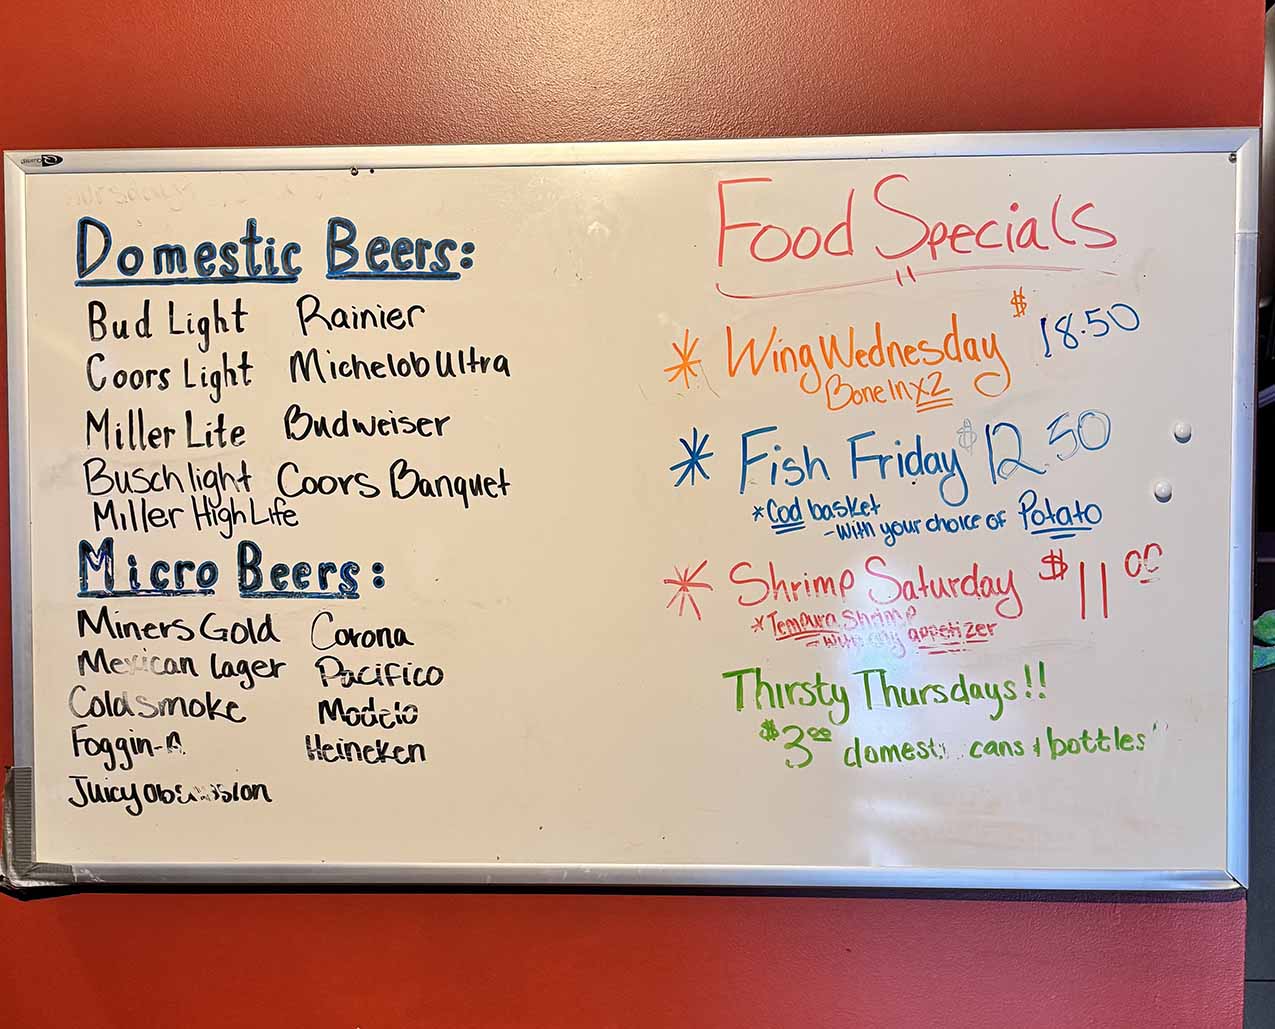 Domestic Beers:
Bud Light Rainier
Coors Light Michelob Ultra
Miller Lite Budweiser
Busch light Coors Banquet
Miller High Life
Micro Beers:
Miners Gold Corona
Mexican lager Pacifico
Coldsmoke Modelo
Foggin-A Heineken
Juicy
Food Specials
* Wing Wednesday $18.50
Bone In x2
* Fish Friday $12.50
*Cod basket
-with your choice of Potato
* Shrimp Saturday $11 00
*Tempura Shrimp
-with any appetizer
Thirsty Thursdays!!
$3 00 cans & bottles